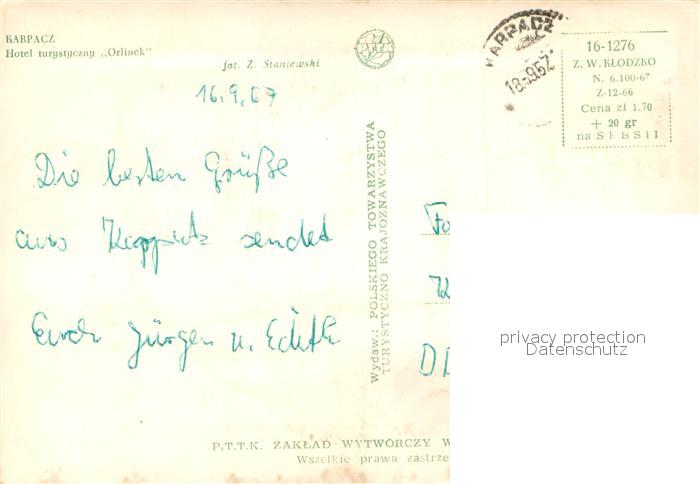 KARPACZ
Hotel turystyczny „Orlinek"
fot. Z. Staniewski
PTTK
KARPACZ
18.-9.67
16-1276
Z. W. KŁODZKO
N. 6.100-67
Z-12-66
Cena zł 1.70
+ 20 gr
na SFBSiI
16.9.67
Die besten Grüße
aus sendet
Euch Jürgen u. Edith
Wydaw.: POLSKIEGO TOWARZYSTWA
TURYSTYCZNO KRAJOZNAWCZEGO
Fa
K
DD
privacy protection
Datenschutz
P.T.T.K. ZAKŁAD WYTWÓRCZY W
Wszelkie prawa zastrze